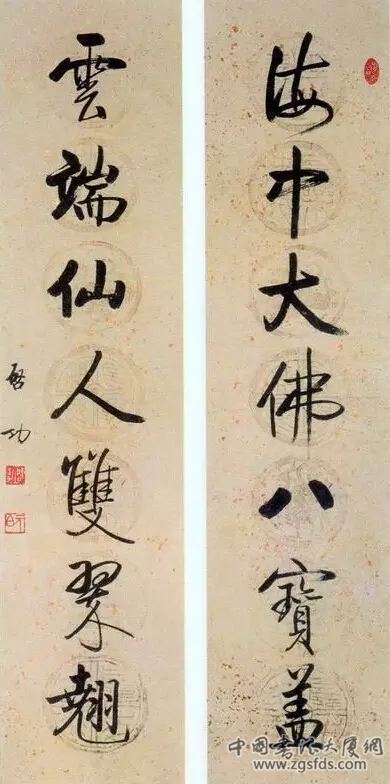 海中大佛八寶盖
雲端仙人雙翠翹
啓功
中国书法大厦网
www.zgsfds.com